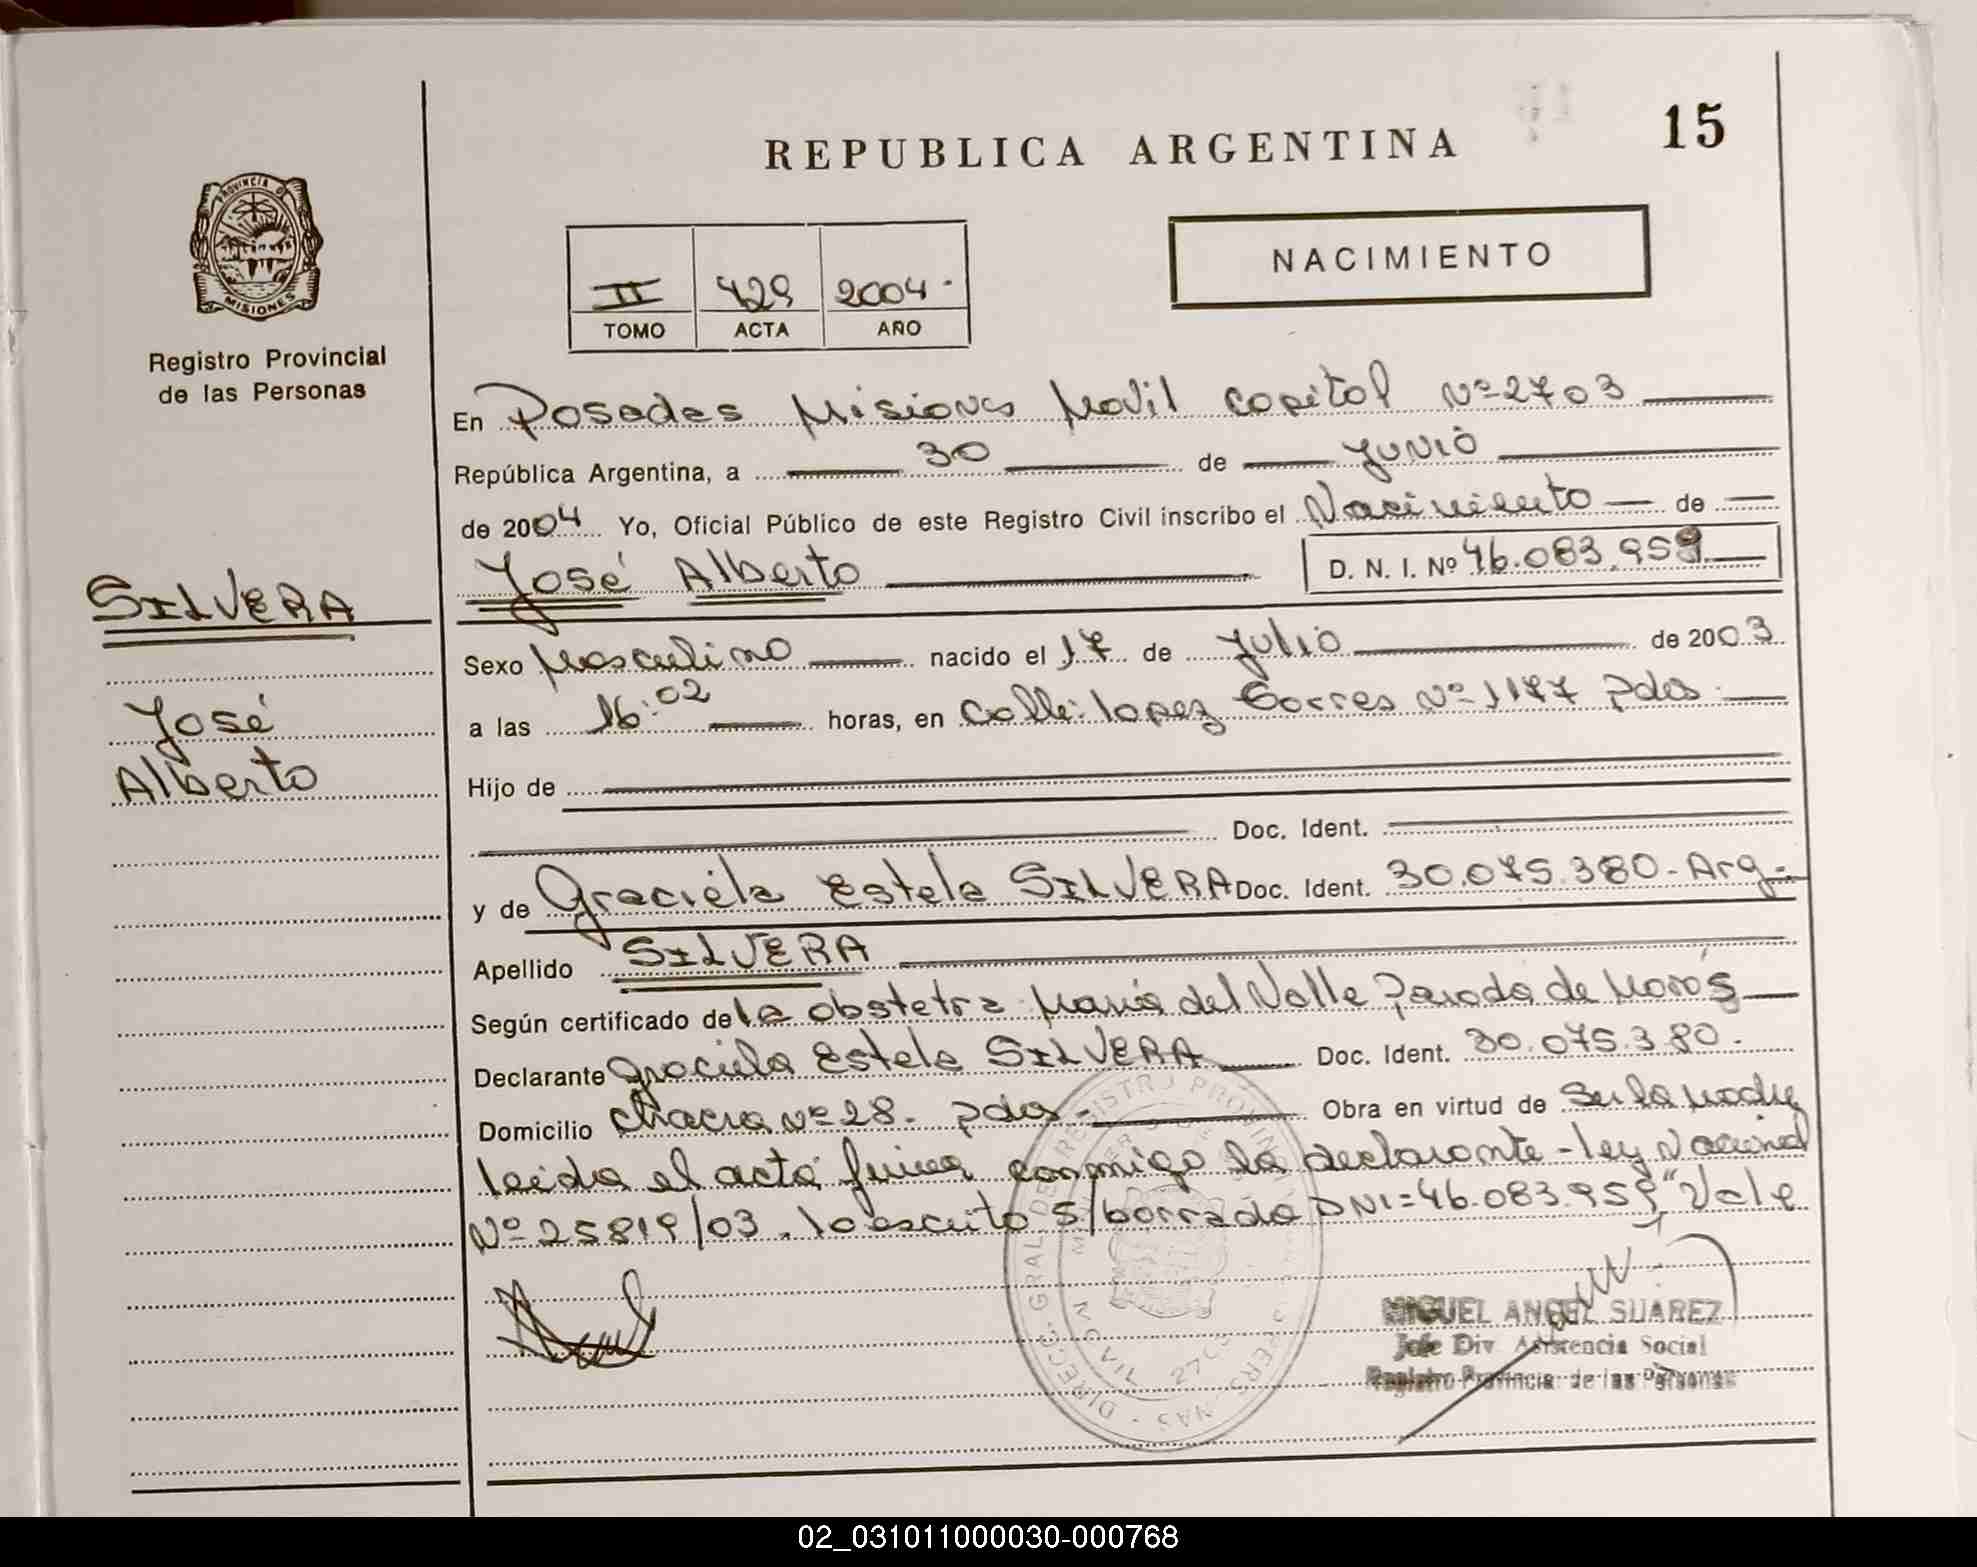 REPUBLICA ARGENTINA
15
PROVINCIA DE MISIONES
Registro Provincial
de las Personas
II 429 2004.
TOMO ACTA AÑO
NACIMIENTO
En Posadas Misiones Movil capital Nº 2703
República Argentina, a 30 de Junio
de 2004 Yo, Oficial Público de este Registro Civil inscribo el Nacimiento de
José Alberto D. N. I. Nº 46.083.959
SILVERA
José
Alberto
Sexo Masculino nacido el 17 de Julio de 2003
a las 16:02 horas, en Calle: lopez torres Nº 1177 pdas.
Hijo de
Doc. Ident.
y de Graciela Estela SILVERA Doc. Ident. 30.075.380 - Arg.
Apellido SILVERA
Según certificado de la obstetra María del Valle Parada de
Declarante Graciela Estela SILVERA Doc. Ident. 30.075.380.
Domicilio Chacra Nº 28. pdas. Obra en virtud de Ser la madre
leida el acta firma conmigo la declarante - ley Nacional
Nº 25819/03. lo escrito s/borrado DNI=46.083.959 "Vale
MIGUEL ANGEL SUAREZ
Jefe Div. Asistencia Social
Registro Provincial de las Personas
02_031011000030-000768